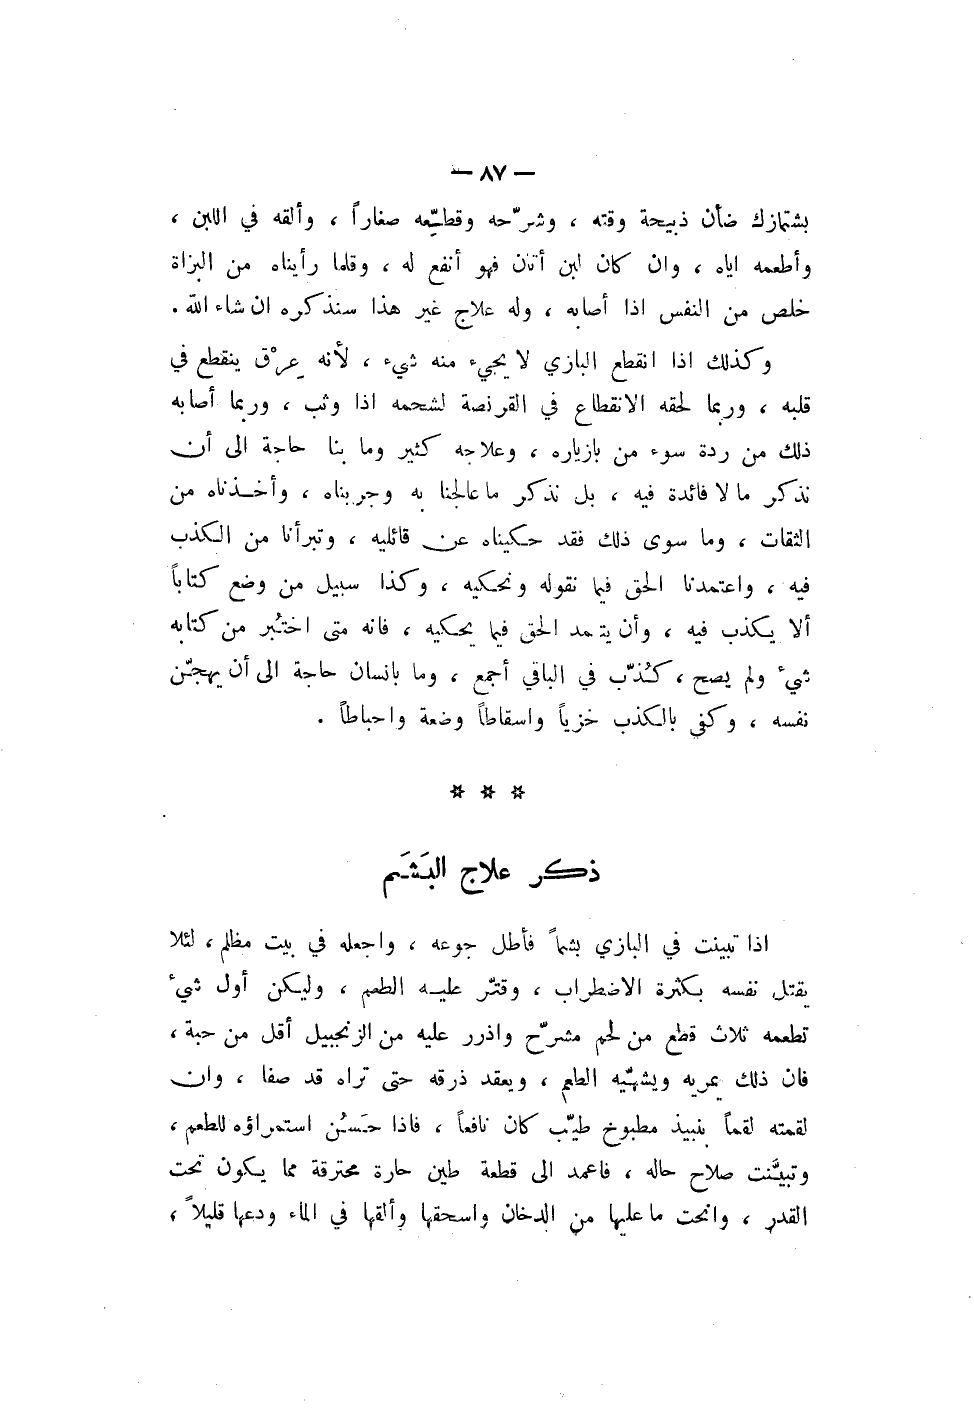 — ٨٧ —
بشتمازك ضأن ذبيحة وقته ، وشرّحه وقطّعه صغاراً ، وألقه في اللبن ،
وأطعمه اياه ، وان كان لبن أتان فهو أنفع له ، وقلما رأيناه من البزاة
خلص من النفس اذا أصابه ، وله علاج غير هذا سنذكره ان شاء الله .
وكذلك اذا انقطع البازي لا يجيء منه شيء ، لأنه عِرْق ينقطع في
قلبه ، وربما لحقه الانقطاع في القرنصة لشحمه اذا وثب ، وربما أصابه
ذلك من ردة سوء من بازياره ، وعلاجه كثير وما بنا حاجة الى أن
نذكر ما لا فائدة فيه ، بل نذكر ما عالجنا به وجربناه ، وأخذناه من
الثقات ، وما سوى ذلك فقد حكيناه عن قائليه ، وتبرأنا من الكذب
فيه ، واعتمدنا الحق فيما نقوله ونحكيه ، وكذا سبيل من وضع كتاباً
ألا يكذب فيه ، وأن يتمد الحق فيما يحكيه ، فانه متى اختُبر من كتابه
شيء ولم يصح ، كُذّب في الباقي أجمع ، وما بانسان حاجة الى أن يهجّن
نفسه ، وكفى بالكذب خزياً واسقاطاً وضعة واحباطاً .
* * *
ذكر علاج البَشَم
اذا تبينت في البازي بشماً فأطل جوعه ، واجعله في بيت مظلم ، لئلا
يقتل نفسه بكثرة الاضطراب ، وقتّر عليه الطعم ، وليكن أول شيء
تطعمه ثلاث قطع من لحم مشرّح واذرر عليه من الزنجبيل أقل من حبة ،
فان ذلك يمريه ويشهّيه الطعم ، ويعقد ذرقه حتى تراه قد صفا ، وان
لقمته لقماً بنبيذ مطبوخ طيّب كان نافعاً ، فاذا حَسُن استمراؤه للطعم ،
وتبيّنت صلاح حاله ، فاعمد الى قطعة طين حارة محترقة مما يكون تحت
القدر ، وانحت ما عليها من الدخان واسحقها وألقها في الماء ودعها قليلاً ،